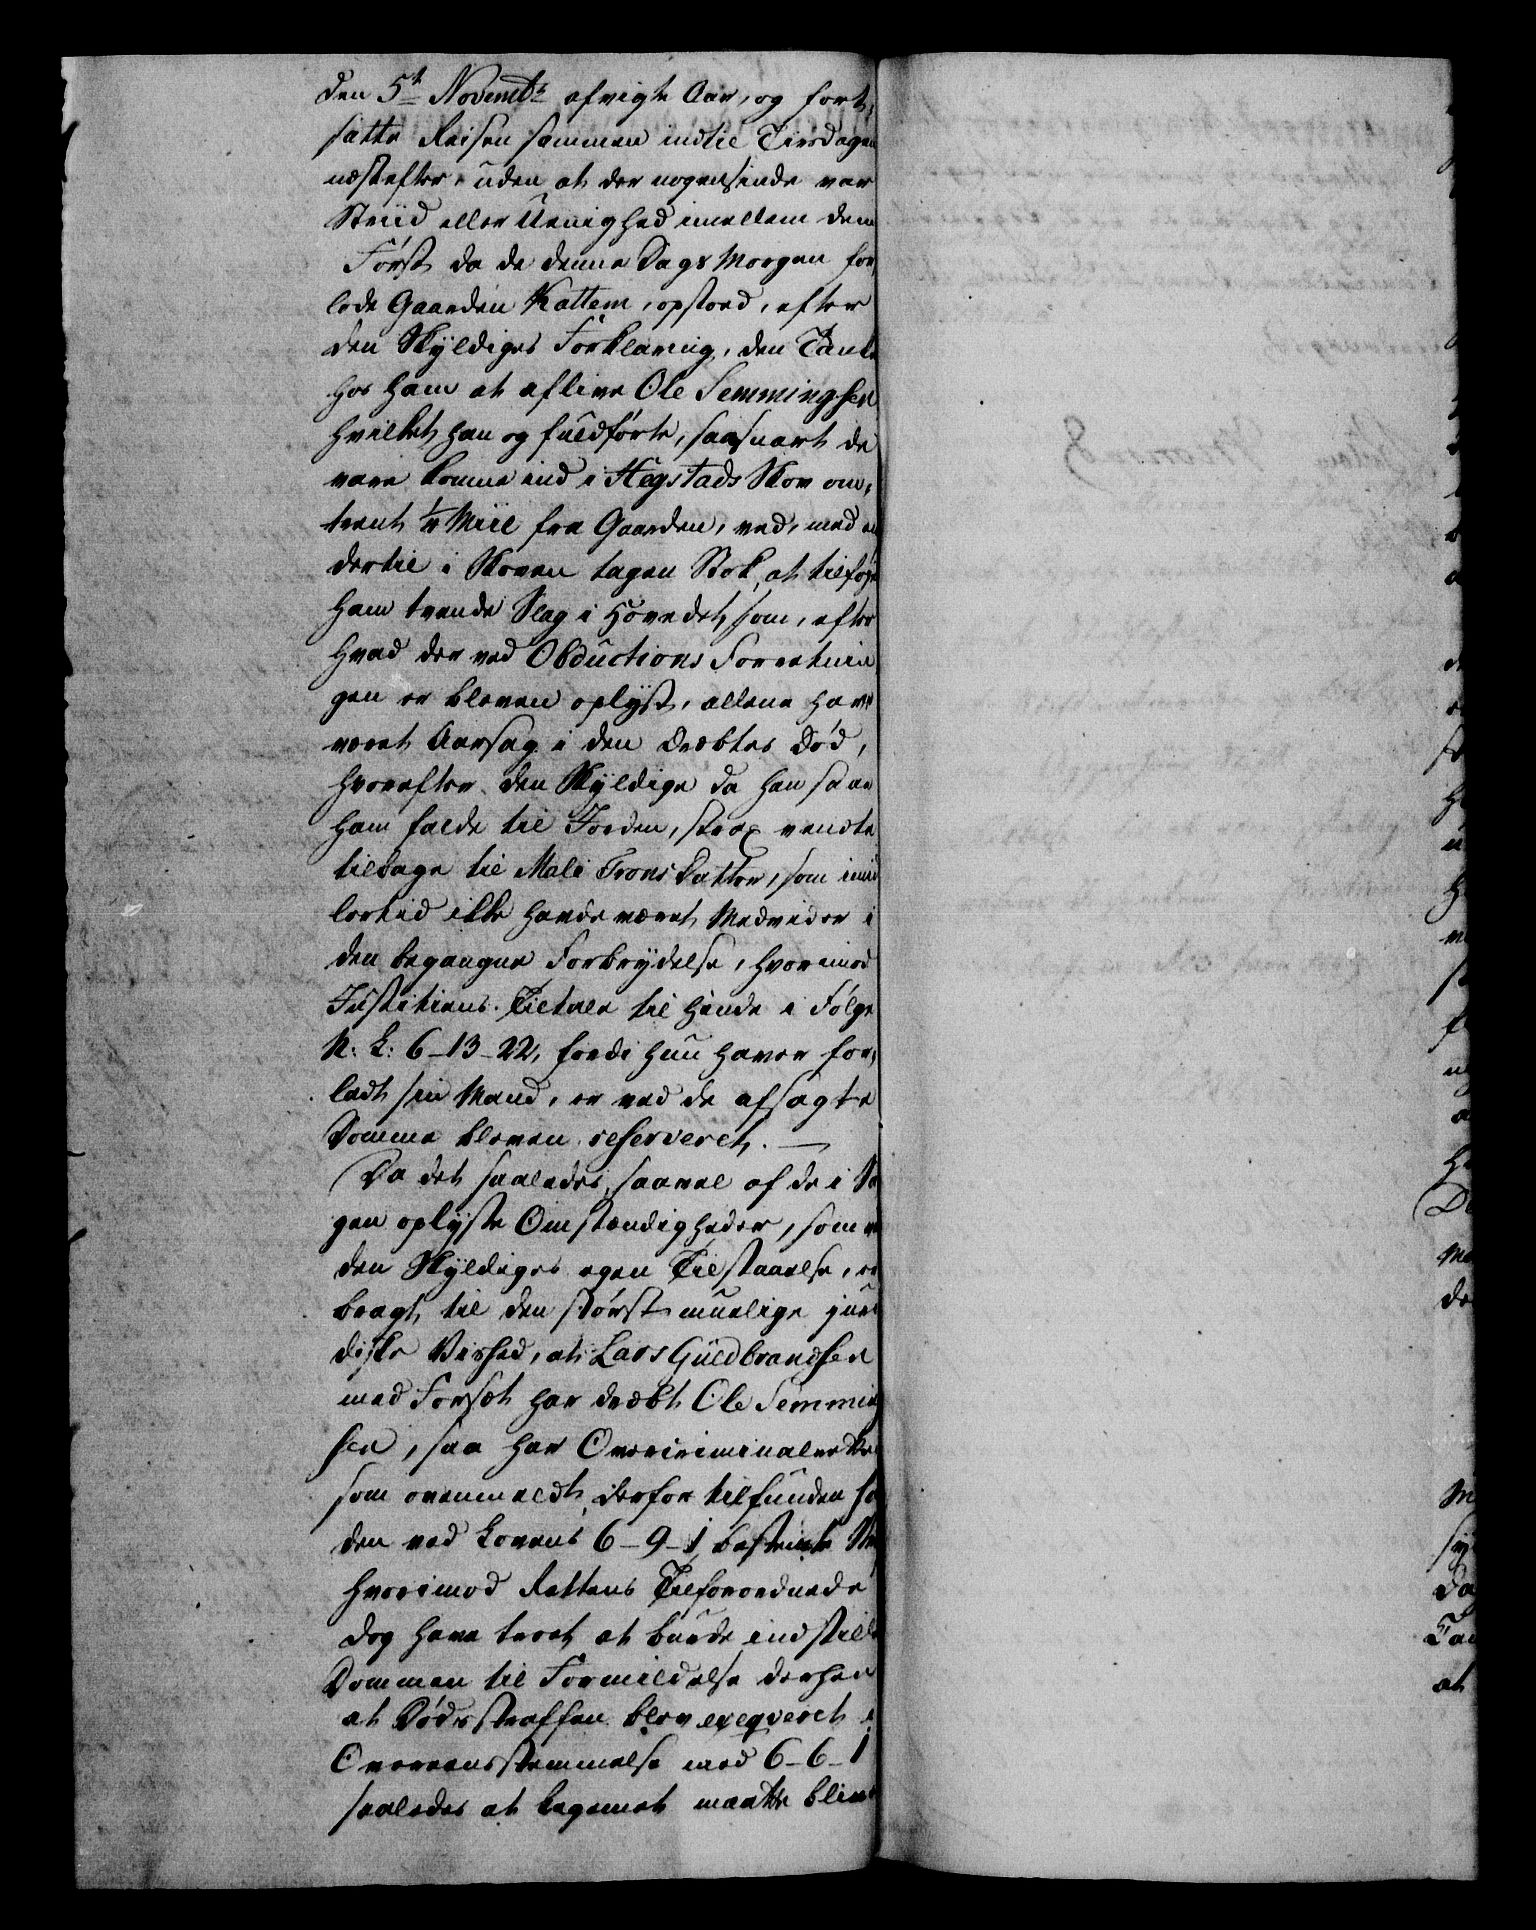 den 5te Novembr afvigte Aar, og fort-
satte Reisen sammen indtil Tirsdagen
næstefter, uden at der nogensinde var
Striid eller Uenighed imellem dem
Først da de denne Dags Morgen for
lode Gaarden Kattem, opstod, efter
den Skyldiges Forklaring, den Tanke
hos ham at aflive Ole Semmingsen
hvilket han og fuldførte, saasnart de
vare komne ind i Hegstads Skov om-
trent 1/4 Miil fra Gaarden, ved, med en
dertil i Skoven tagen Stok, at tilføye
ham trende Slag i Hovedet, som, efter
hvad der ved Obductions Forretnin
gen er bleven oplyst, allene har
været Aarsag i den Dræbtes Død,
hvorefter den Skyldige da han saae
ham falde til Jorden, strax vendte
tilbage til Mali Tronsdatter, som imid
lertid ikke havde været Medvider i
den begangne Forbrydelse, hvorimod
Justitiens Tiltale til hende i Følge
N: L: 6-13-22, fordi hun haver for-
ladt sin Mand, er ved de afsagte
Domme bleven reserveret.
Da det saaledes, saavel af de i Sa
gen oplyste Omstændigheder, som
den Skyldiges egen Tilstaaelse, er
bragt til den størst muelige juri
diske Vished, at Lars Guldbrandsen
med Forsæt har dræbt Ole Semming
sen, saa har Overcriminalretten
som ovenmeldt, derfor tilfunden ham
den ved Lovens 6-9-1 bestemte Straf
hvorimod Rettens Tilforordnede
dog have troet at burde indstille
Dommen til Formildelse derhen
at Dødsstraffen blev exeqveret i
Overeensstemmelse med 6-6-1
saaledes at Legemet maatte blive